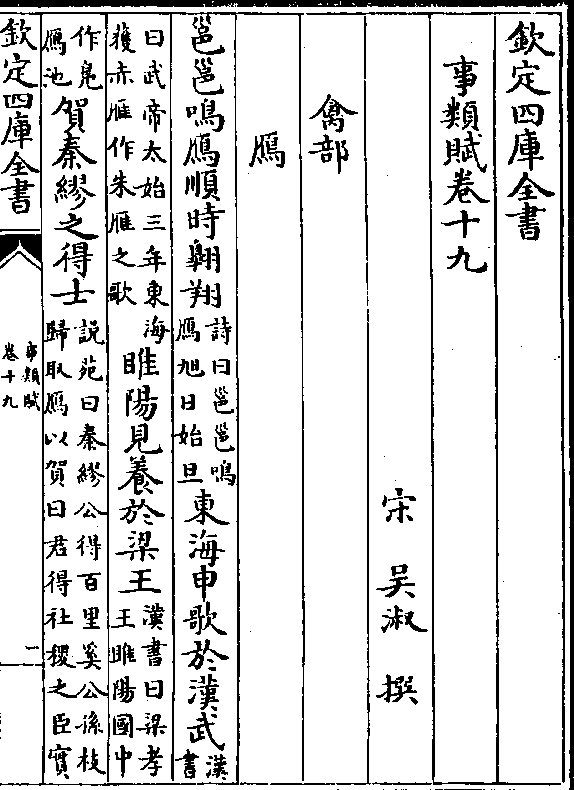 欽定四庫全書
事類賦卷十九
宋 吳淑 撰
禽部
鴈
邕邕鳴鴈順時翺翔詩曰邕邕鳴鴈旭日始旦東海申歌於漢武漢書
曰武帝太始三年東海獲赤雁作朱雁之歌睢陽見養於梁王漢書曰梁孝王睢陽國中
作鳧鴈池賀秦繆之得士說苑曰秦繆公得百里奚公孫枝歸取鴈以賀曰君得社稷之臣實
欽定四庫全書
事類賦
卷十九
一